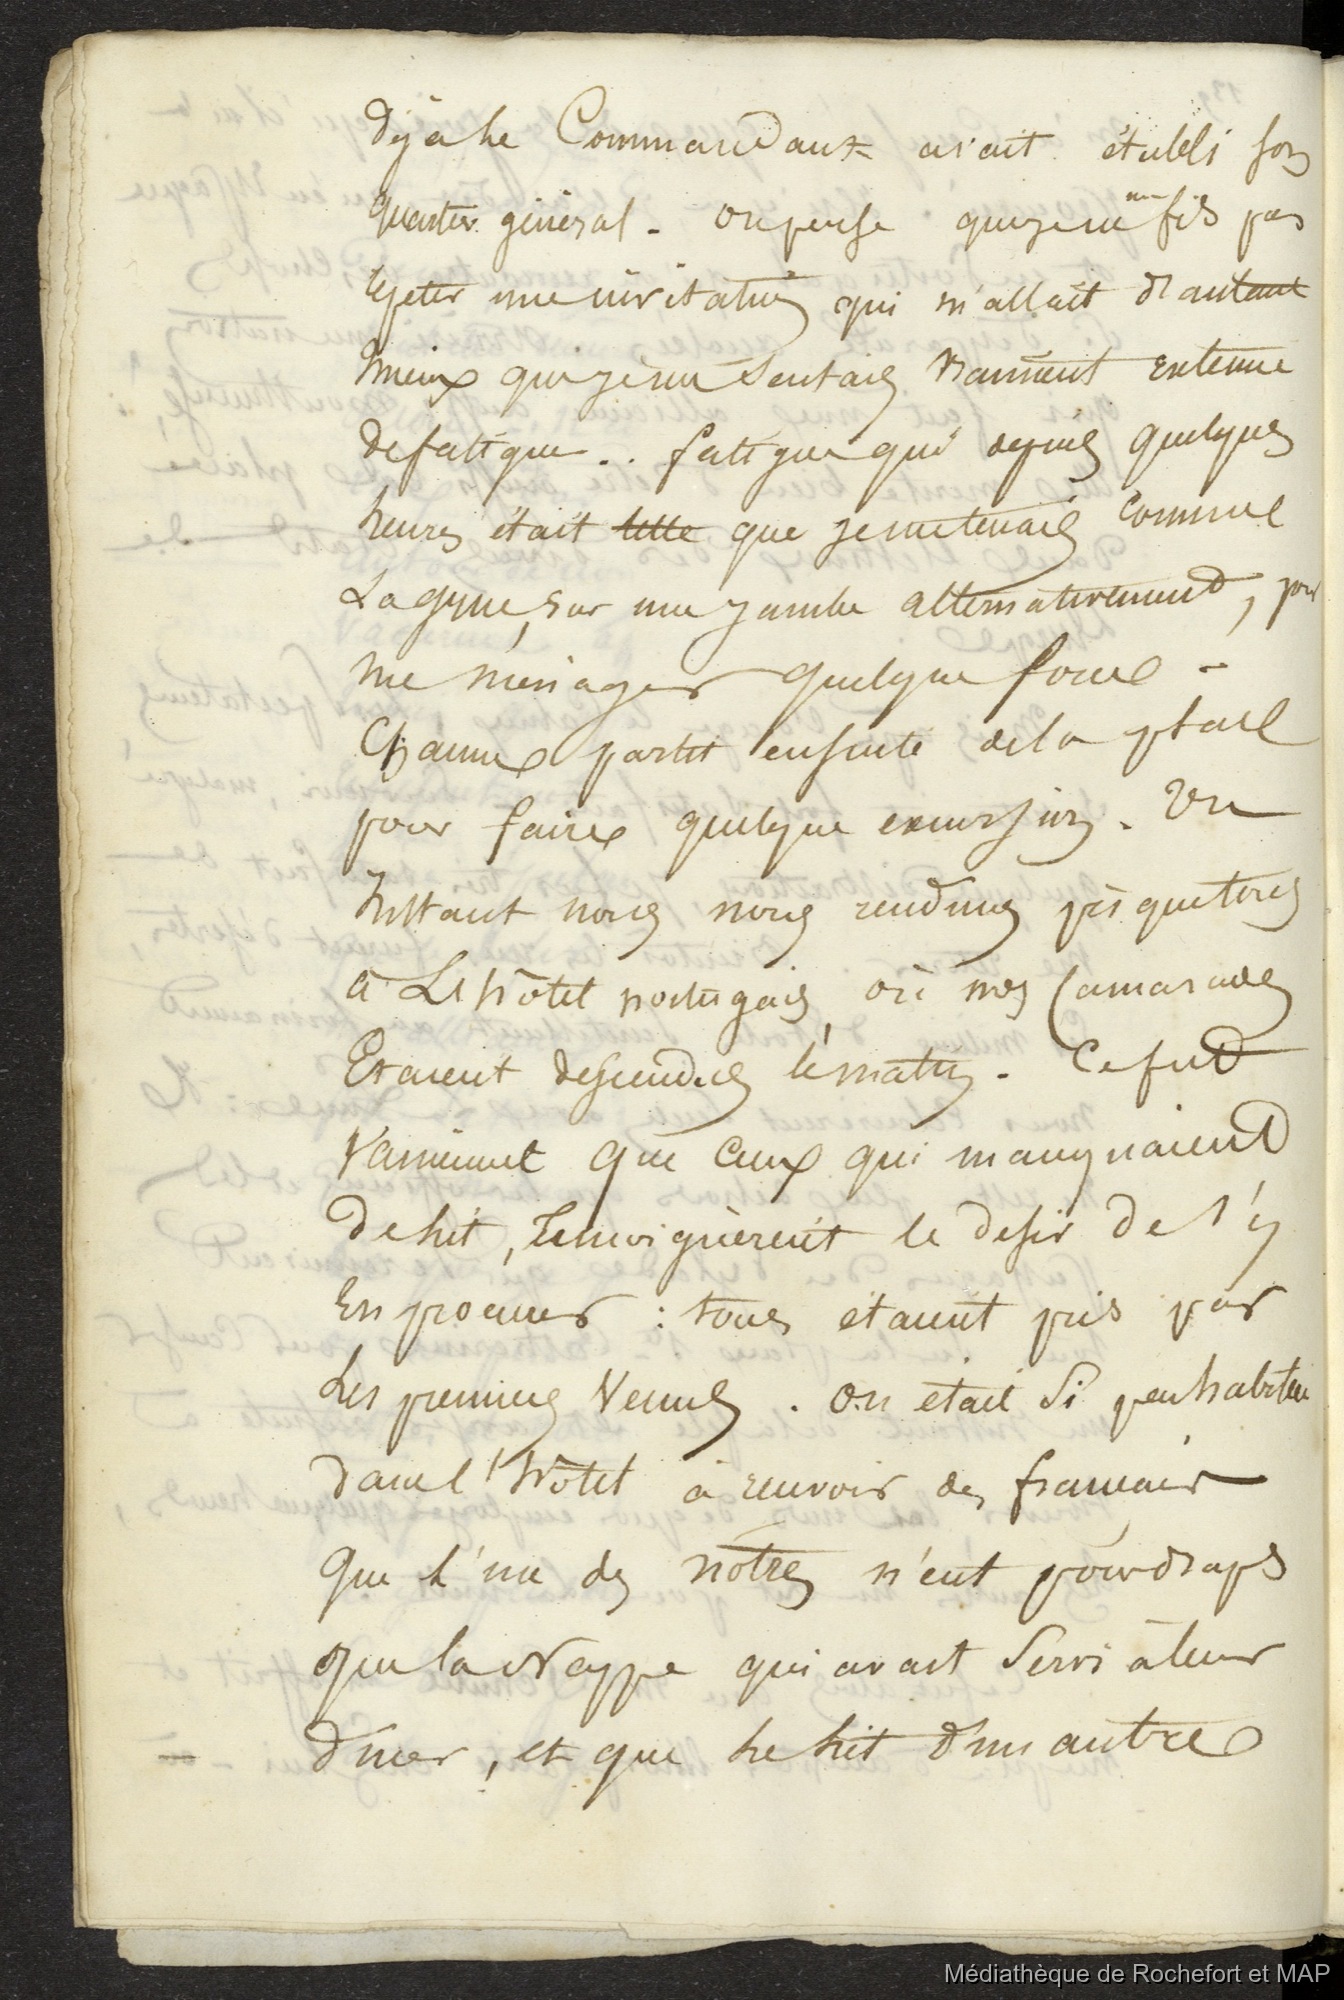 déjà le Commandant avait établi son
quartier général. on pense que je ne me fis pas
répéter une invitation qui m'allait d'autant
mieux que je me sentais vraiment extenué
de fatigue.. fatigue qui depuis quelques
heures était telle que je me tenais comme
La grue, sur une jambe alternativement, pour
me ménager quelque force -
Chacun partit ensuite de la place
pour faire quelque excursion. Un
Instant nous nous rendimes presque tous
à L'hôtel portugais, où nos Camarades
Etaient descendus le matin. Ce fut
vainement que ceux qui manquaient
de lit, temoignèrent le desir de s'y
En procurer : tous étaient pris par
Les premiers venus. on était si peu habitué
dans l'hôtel à recevoir des français
que l'un des notres n'eut pour draps
que la Nappe qui avait servi à leur
diner, et que le lit d'un autre
Médiathèque de Rochefort et MAP